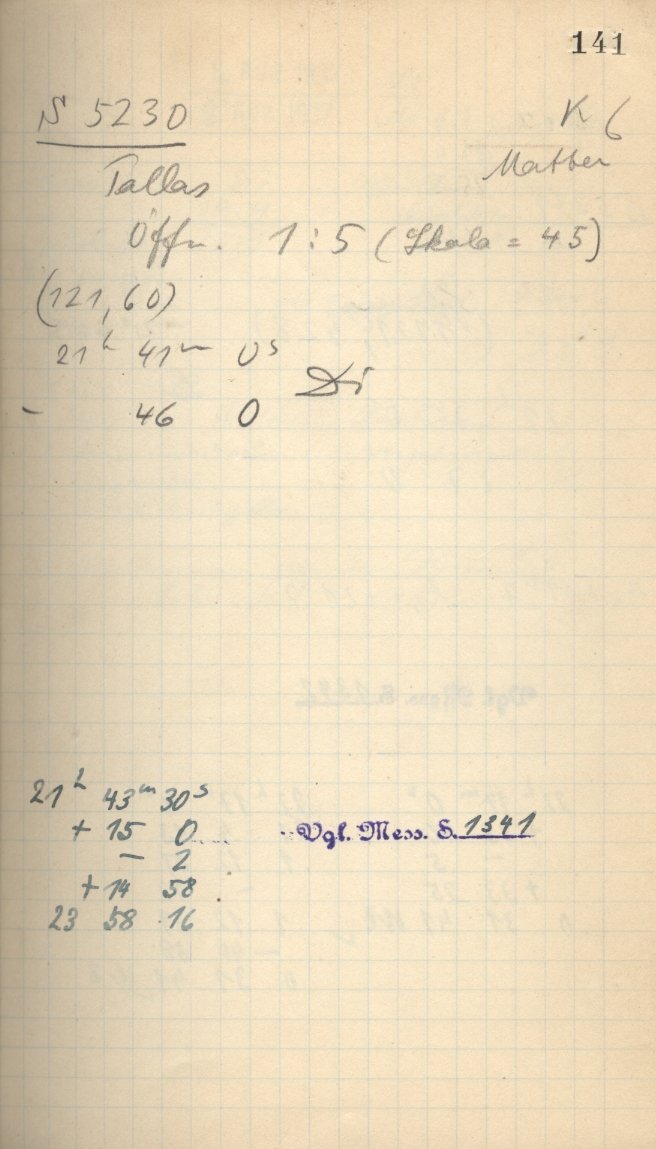 141
S 5230
K 6
Matter
Pallas
Öffn. 1:5 (Skala = 45)
(121,60)
21h 41m 0s
- 46 0
21h 43m 30s
+ 15 0
- 2
+ 14 58
23 58 16
Vgl. Mess. S. 1341